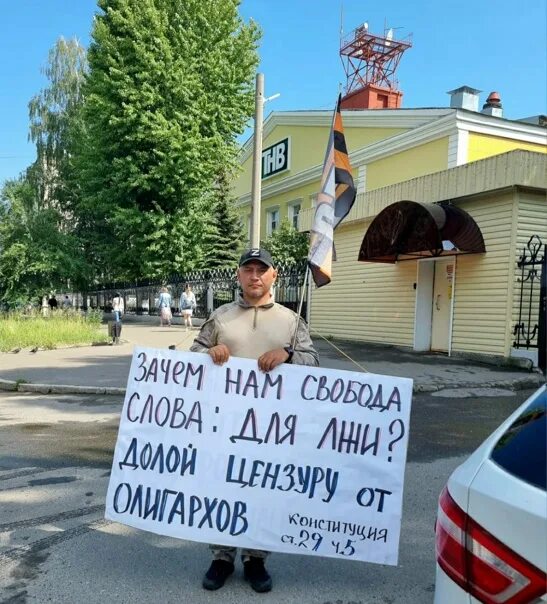 ТНВ
Z
ЗАЧЕМ НАМ СВОБОДА
СЛОВА: ДЛЯ ЛЖИ?
ДОЛОЙ ЦЕНЗУРУ ОТ
ОЛИГАРХОВ
КОНСТИТУЦИЯ
СТ.29 Ч.5